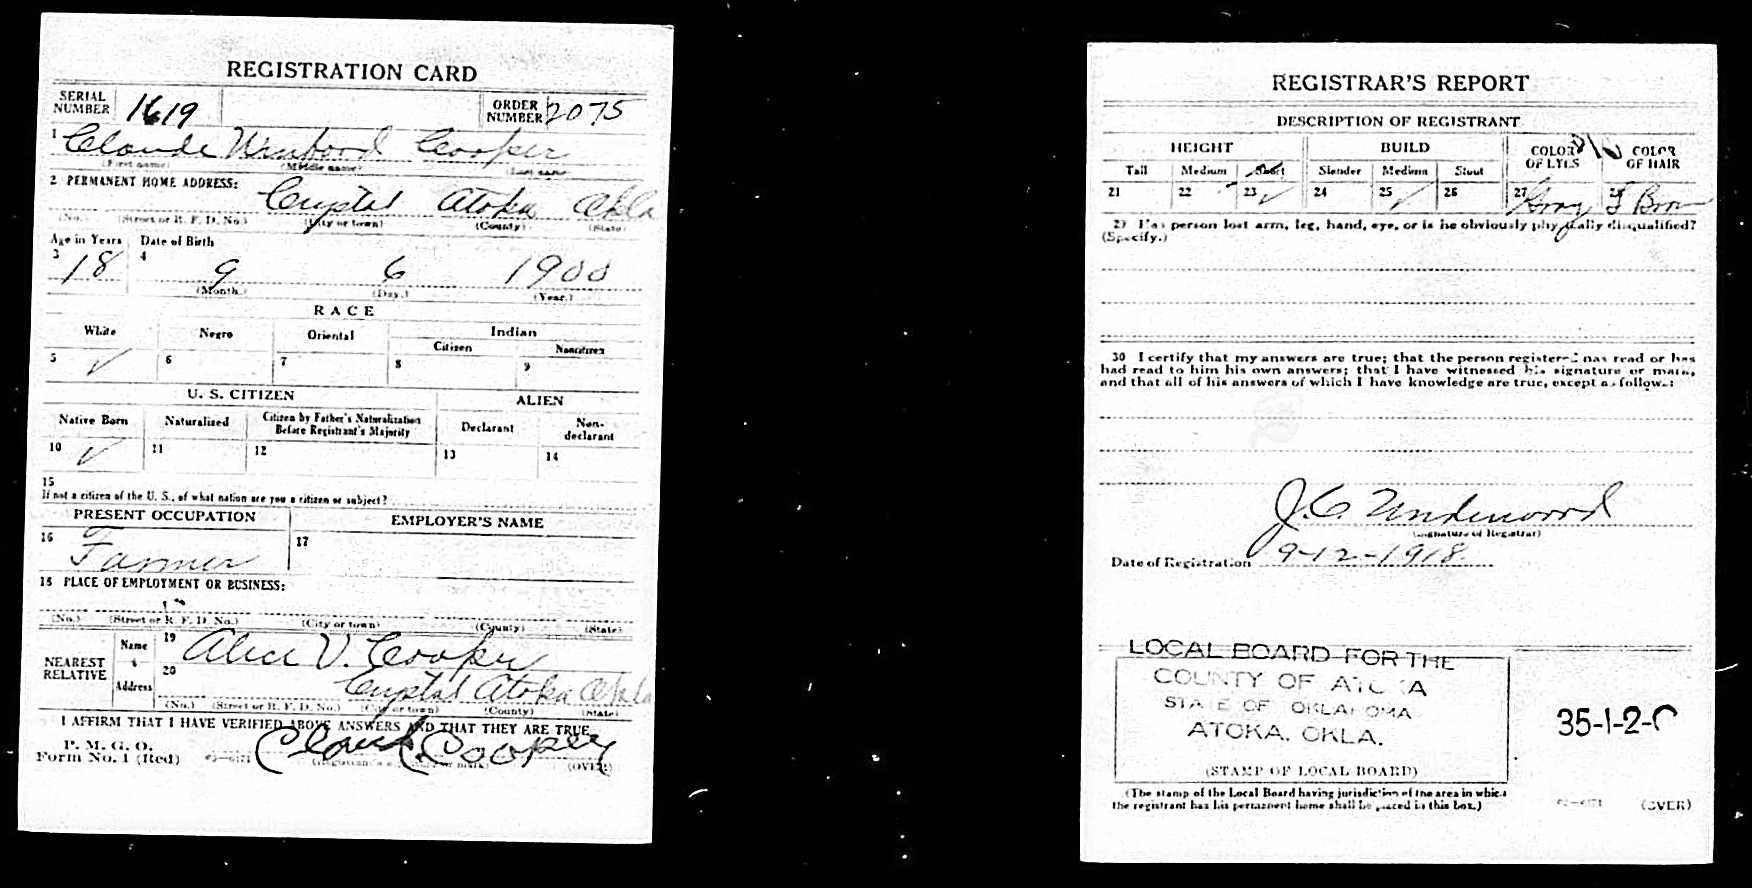 REGISTRATION CARD
SERIAL NUMBER 1619 ORDER NUMBER 2075
1 Claude Cooper
(First name) (Middle name) (Last name)
2 PERMANENT HOME ADDRESS: Crystal Atoka Okla
(No.) (Street or R. F. D. No.) (City or town) (County) (State)
Age in Years Date of Birth
3 18 4 9 6 1900
(Month.) (Day.) (Year.)
RACE
White Negro Oriental Indian
Citizen Noncitizen
5 ✓ 6 7 8 9
U. S. CITIZEN ALIEN
Native Born Naturalized Citizen by Father's Naturalization Before Registrant's Majority Declarant Non-declarant
10 ✓ 11 12 13 14
15
If not a citizen of the U. S., of what nation are you a citizen or subject?
PRESENT OCCUPATION EMPLOYER'S NAME
16 Farmer 17
18 PLACE OF EMPLOYMENT OR BUSINESS:
(No.) (Street or R. F. D. No.) (City or town) (County) (State)
NEAREST RELATIVE Name 19 Alice V. Cooper
Address 20 Crystal Atoka Okla
(No.) (Street or R. F. D. No.) (City or town) (County) (State)
I AFFIRM THAT I HAVE VERIFIED ABOVE ANSWERS AND THAT THEY ARE TRUE
P. M. G. O.
Form No. 1 (Red) Cooper (OVER)
REGISTRAR'S REPORT
DESCRIPTION OF REGISTRANT
HEIGHT BUILD COLOR OF EYES COLOR OF HAIR
Tall Medium Short Slender Medium Stout
21 22 23 ✓ 24 25 ✓ 26 27 Gray 28
29 Has person lost arm, leg, hand, eye, or is he obviously physically disqualified?
(Specify.)
30 I certify that my answers are true; that the person registered has read or has
had read to him his own answers; that I have witnessed his signature or mark,
and that all of his answers of which I have knowledge are true, except as follows:
J. C. Underwood
(Signature of Registrar)
Date of Registration 9-12-1918
LOCAL BOARD FOR THE
COUNTY OF ATOKA
STATE OF OKLAHOMA
ATOKA, OKLA.
35-1-2-C
(STAMP OF LOCAL BOARD)
(The stamp of the Local Board having jurisdiction of the area in which
the registrant has his permanent home shall be placed in this box.)
(OVER)